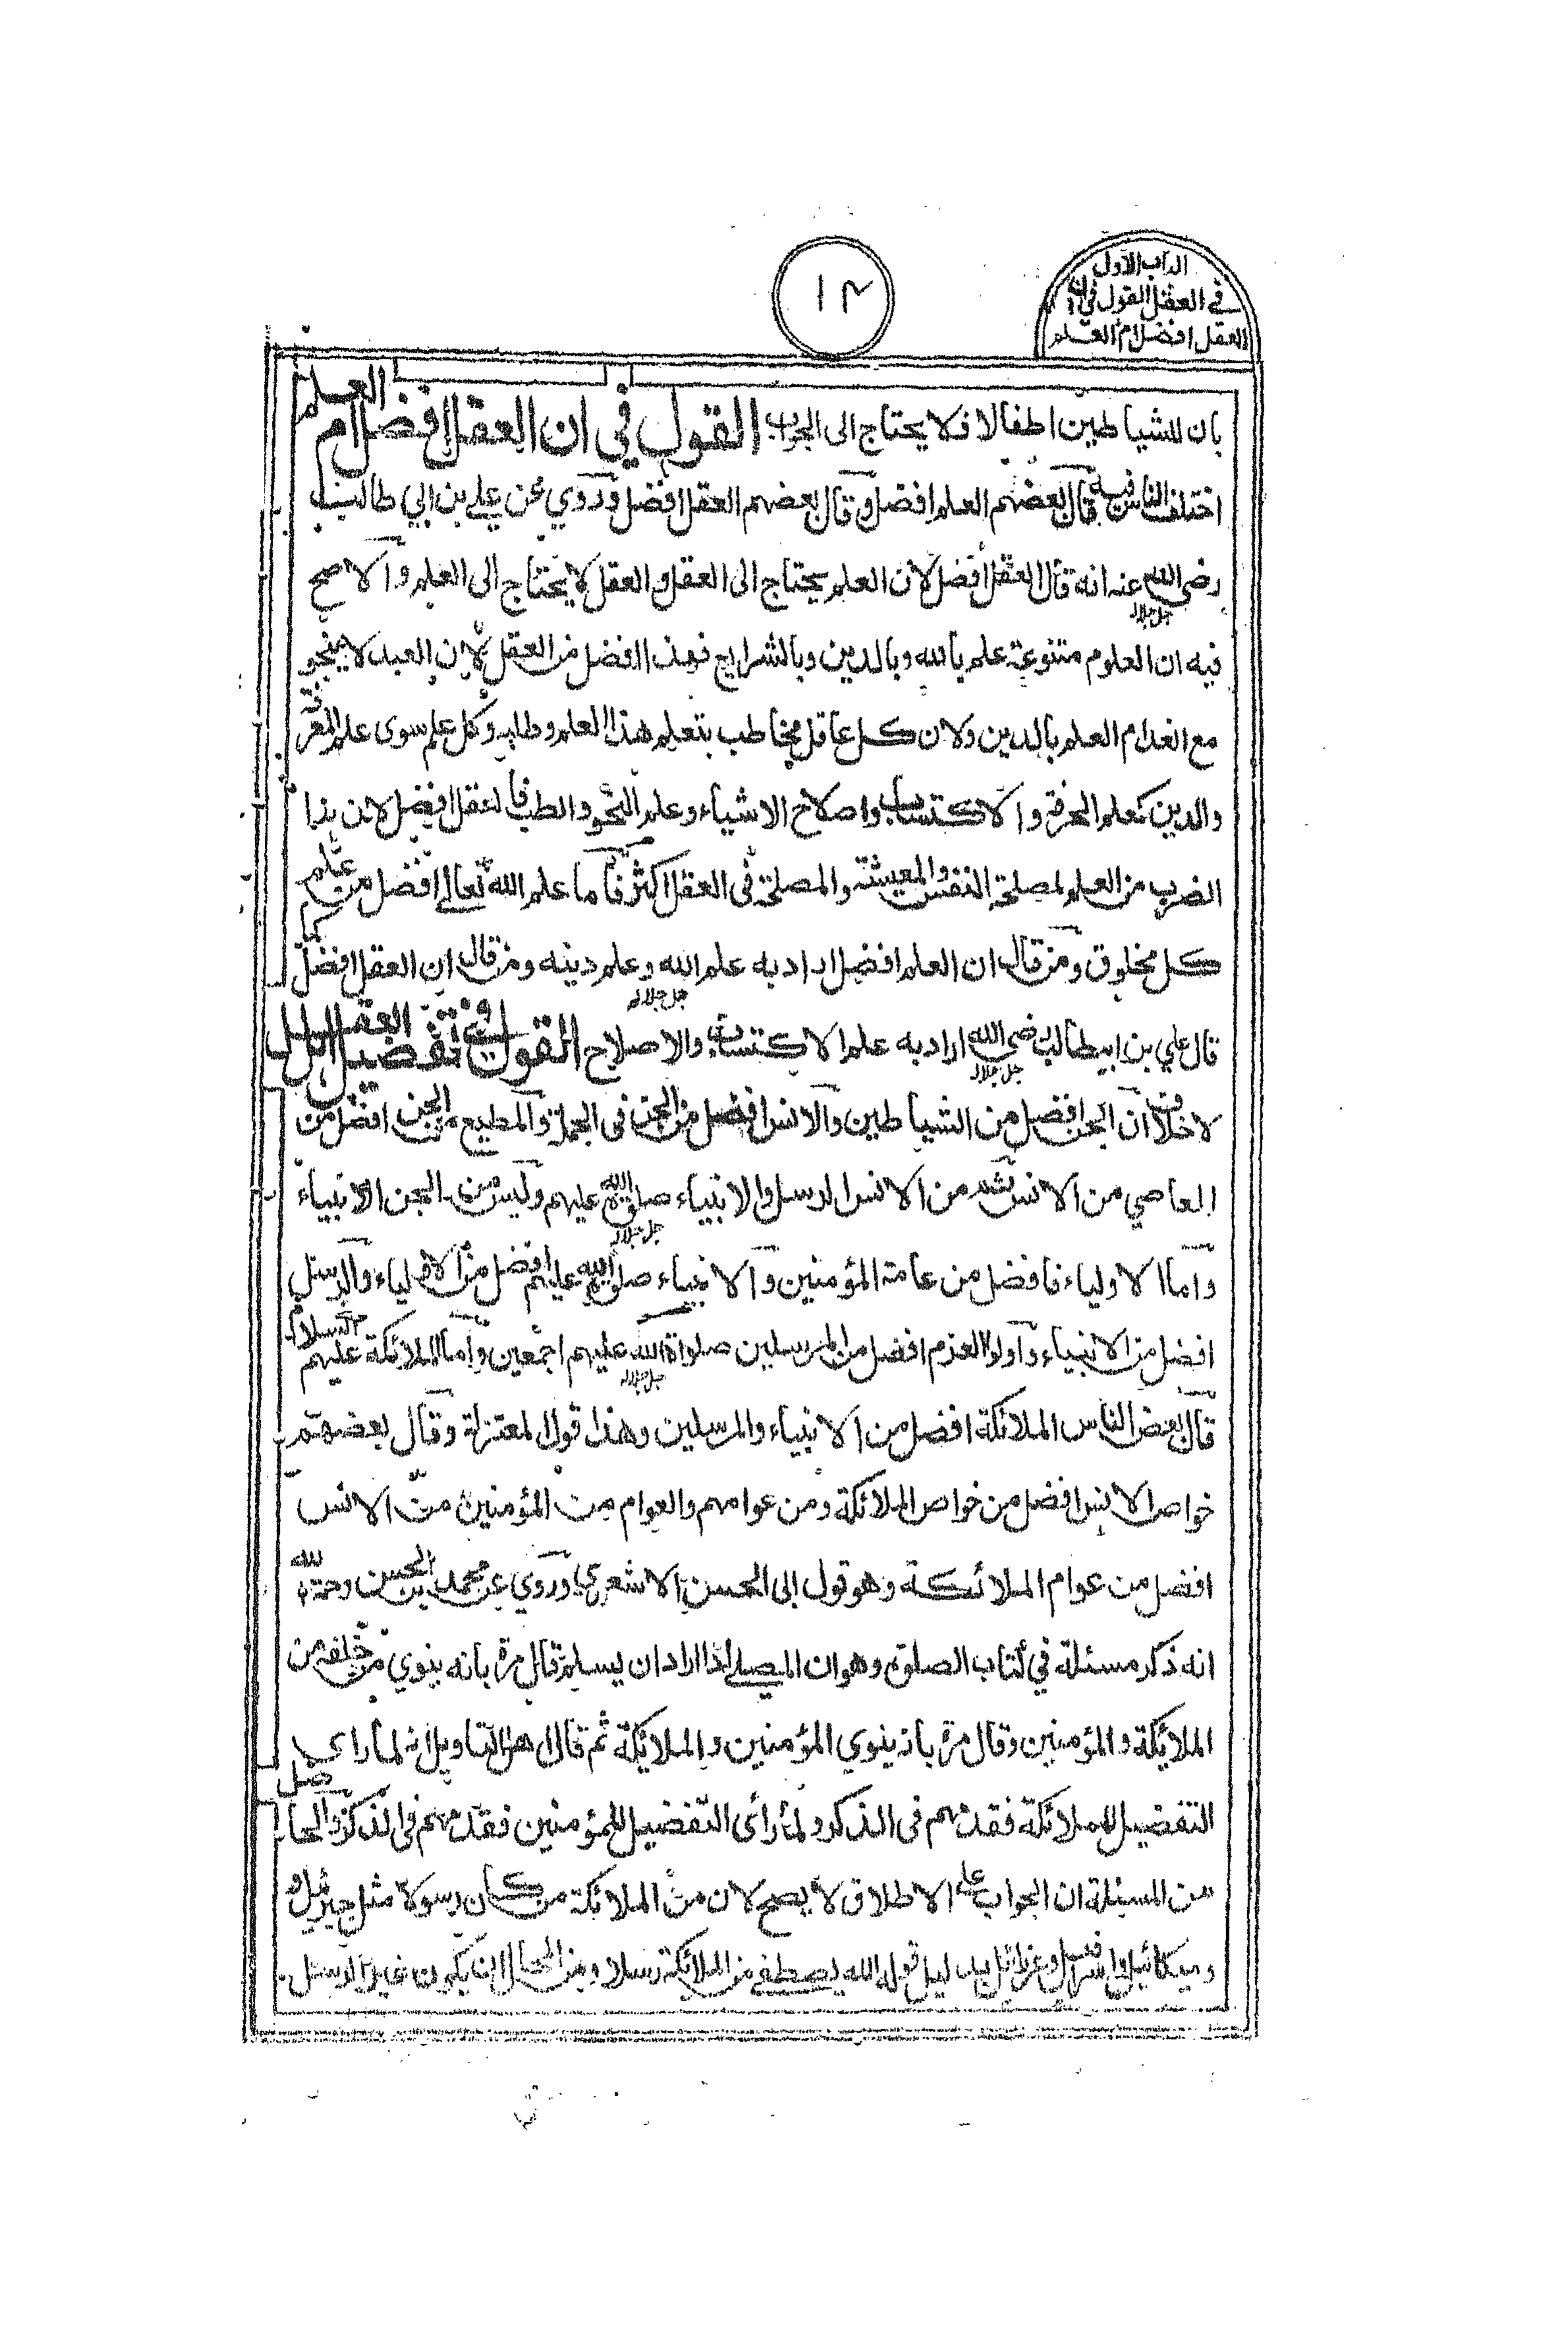 الباب الاول
في العقل القول في ان
العقل افضل ام العلم
١٢
بان للشياطين اطفالا فلا يحتاج الى الجواب القول في ان العقل افضل ام العلم
اختلف الناس فيه قال بعضهم العلم افضل وقال بعضهم العقل افضل وروي عن علي بن ابي طالب
رضى الله عنه انه قال العقل افضل لان العلم يحتاج الى العقل والعقل لا يحتاج الى العلم والاصح
جل جلاله
فيه ان العلوم متنوعة علم بالله وبالدين وبالشرايع فهذا افضل من العقل لان العبد لا ينجو
مع انعدام العلم بالدين ولان كل عاقل مخاطب بتعلم هذا العلم وطلبه وكل علم سوى علم المعرفة
والدين كعلم الحرفة والاكتساب واصلاح الاشياء وعلم النحو والطب فالعقل افضل لان هذا
الضرب من العلم لمصلحة النفس والمعيشة والمصلحة فى العقل اكثر فاما علم الله تعالى افضل من علم
كل مخلوق ومن قال ان العلم افضل اراد به علم الله وعلم دينه ومن قال ان العقل افضل كما
جل جلاله
قال علي بن ابيطالب رضى الله اراد به علم الاكتساب والاصلاح القول في تفضيل العقل
جل جلاله
لا خلاف ان الجن افضل من الشياطين والانس افضل من الجن فى الجملة والمطيع من الجن افضل من
العاصي من الانس ثم من الانس الرسل والانبياء صلوة الله عليهم وليس من الجن الانبياء
جل جلاله
واما الاولياء فافضل من عامة المؤمنين والانبياء صلوة الله عليهم افضل من الاولياء والرسل
افضل من الانبياء واولوا العزم افضل من المرسلين صلواة الله عليهم اجمعين واما الملائكة عليهم السلام
جل جلاله
قال بعض الناس الملائكة افضل من الانبياء والمرسلين وهذا قول المعتزلة وقال بعضهم
خواص الانس افضل من خواص الملائكة ومن عوامهم والعوام من المؤمنين من الانس
افضل من عوام الملائكة وهو قول ابى الحسن الاشعري وروي عن محمد بن الحسن رحمة الله
انه ذكر مسئلة في كتاب الصلوة وهو ان المصلے اذا اراد ان يسلم قال مرة بانه ينوي من خلفه من
الملائكة والمؤمنين وقال مرة بانه ينوي المؤمنين والملائكة ثم قال اهل التاويل انه لما راى
التفضيل للملائكة فقدمهم فى الذكر ولما رأى التفضيل للمؤمنين فقدمهم فى الذكر والحاصل
من المسئلة ان الجواب على الاطلاق لا يصح لان من الملائكة من كان رسولا مثل جبرئيل و
وميكائيل واسرافيل وعزرائيل بدليل قوله الله يصطفے من الملائكة رسلا ومن المحال ان يكون غير الرسل